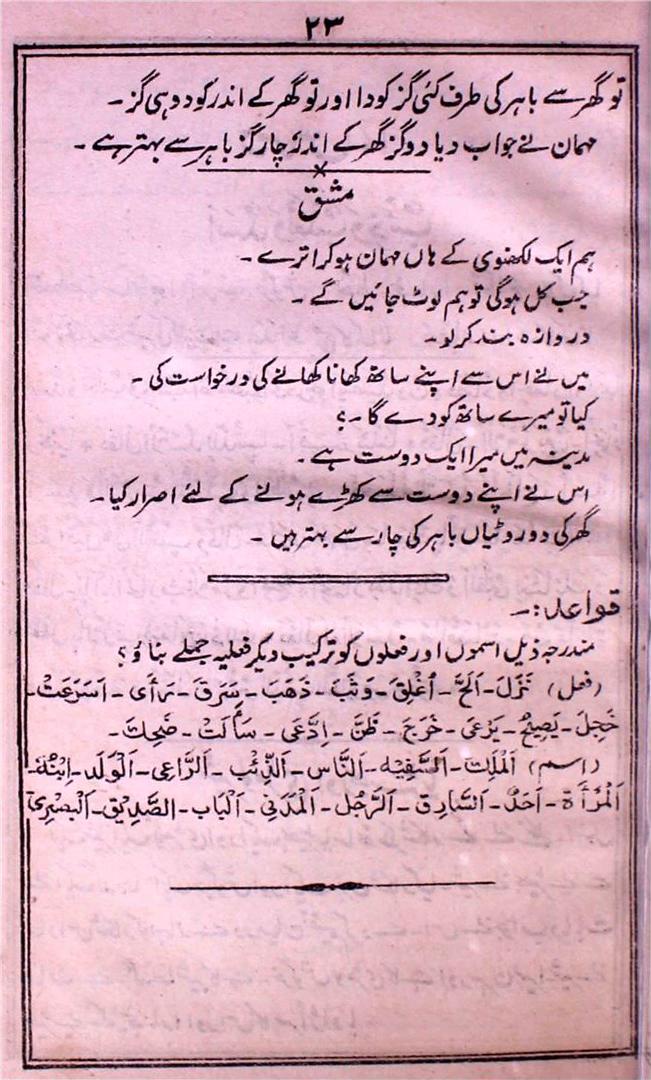 ۲۳
تو گھر سے باہر کی طرف کئی گز کودا اور تو گھر کے اندر کود دو ہی گز۔
مہمان نے جواب دیا دو گز گھر کے اندر چار گز باہر سے بہتر ہے۔
مشق
ہم ایک لکھنوی کے ہاں مہمان ہو کر اترے۔
جب کل ہوگی تو ہم لوٹ جائیں گے۔
دروازہ بند کر لو۔
میں نے اس سے اپنے ساتھ کھانا کھانے کی درخواست کی۔
کیا تو میرے ساتھ کودے گا۔؟
مدینہ میں میرا ایک دوست ہے۔
اس نے اپنے دوست سے کھڑے ہونے کے لئے اصرار کیا۔
گھر کی دو روٹیاں باہر کی چار سے بہتر ہیں۔
قواعد:۔
مندرجہ ذیل اسموں اور فعلوں کو ترکیب دیکر فعلیہ جملے بناؤ؟
(فعل) نَزَلَ۔ اَلَحَّ۔ اُغْلِقَ۔ وَثَبَ۔ ذَهَبَ۔ سَرَقَ۔ رَأَى۔ اَسْرَعَتْ۔
خَجِلَ۔ يَصِيْحُ۔ يَرْعٰى۔ خَرَجَ۔ ظَنَّ۔ اِدَّعٰى۔ سَأَلَتْ۔ ضَحِكَ۔
(اسم) اَلْمَلِكُ۔ اَلسَّفِيْهُ۔ اَلنَّاسُ۔ اَلذِّئْبُ۔ اَلرَّاعِى۔ اَلْوَلَدُ۔ اِبْنُهُ۔
اَلْمَرْأَةُ۔ اَحَدٌ۔ اَلسَّارِقُ۔ اَلرَّجُلُ۔ اَلْمَدَنِىُّ۔ اَلْبَابُ۔ اَلصَّدِيْقُ۔ اَلْبَصْرِىُّ